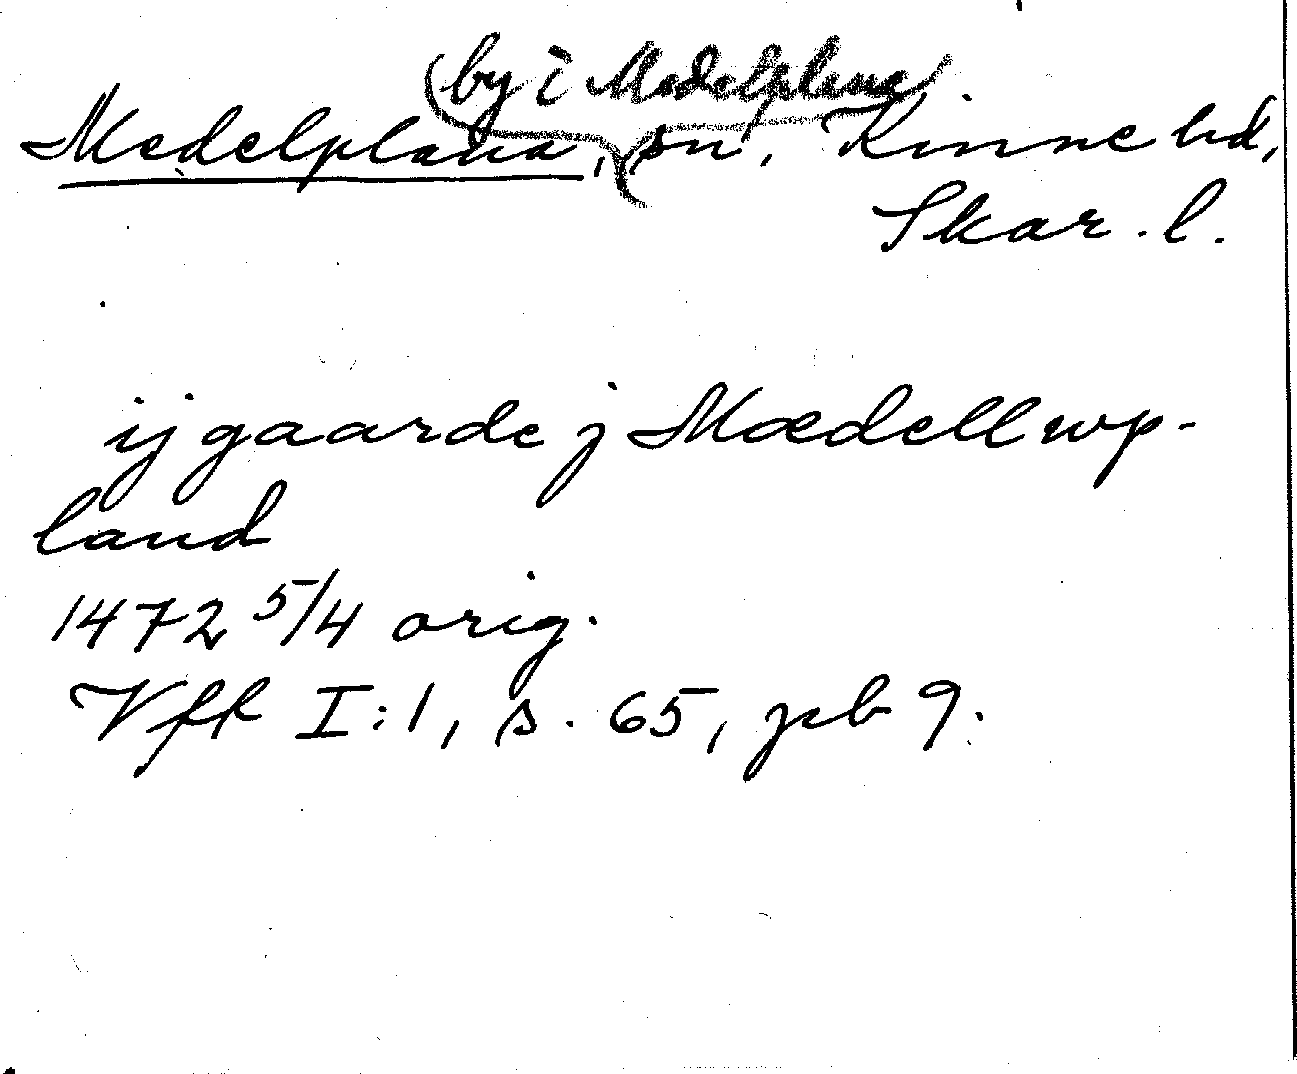 by i Medelplana
Medelplana, sn, Kinne hd,
Skar. l.
ij gaarde j Mædellwp-
land
1472 5/4 orig.
Vff I:1, s. 65, pb 9.